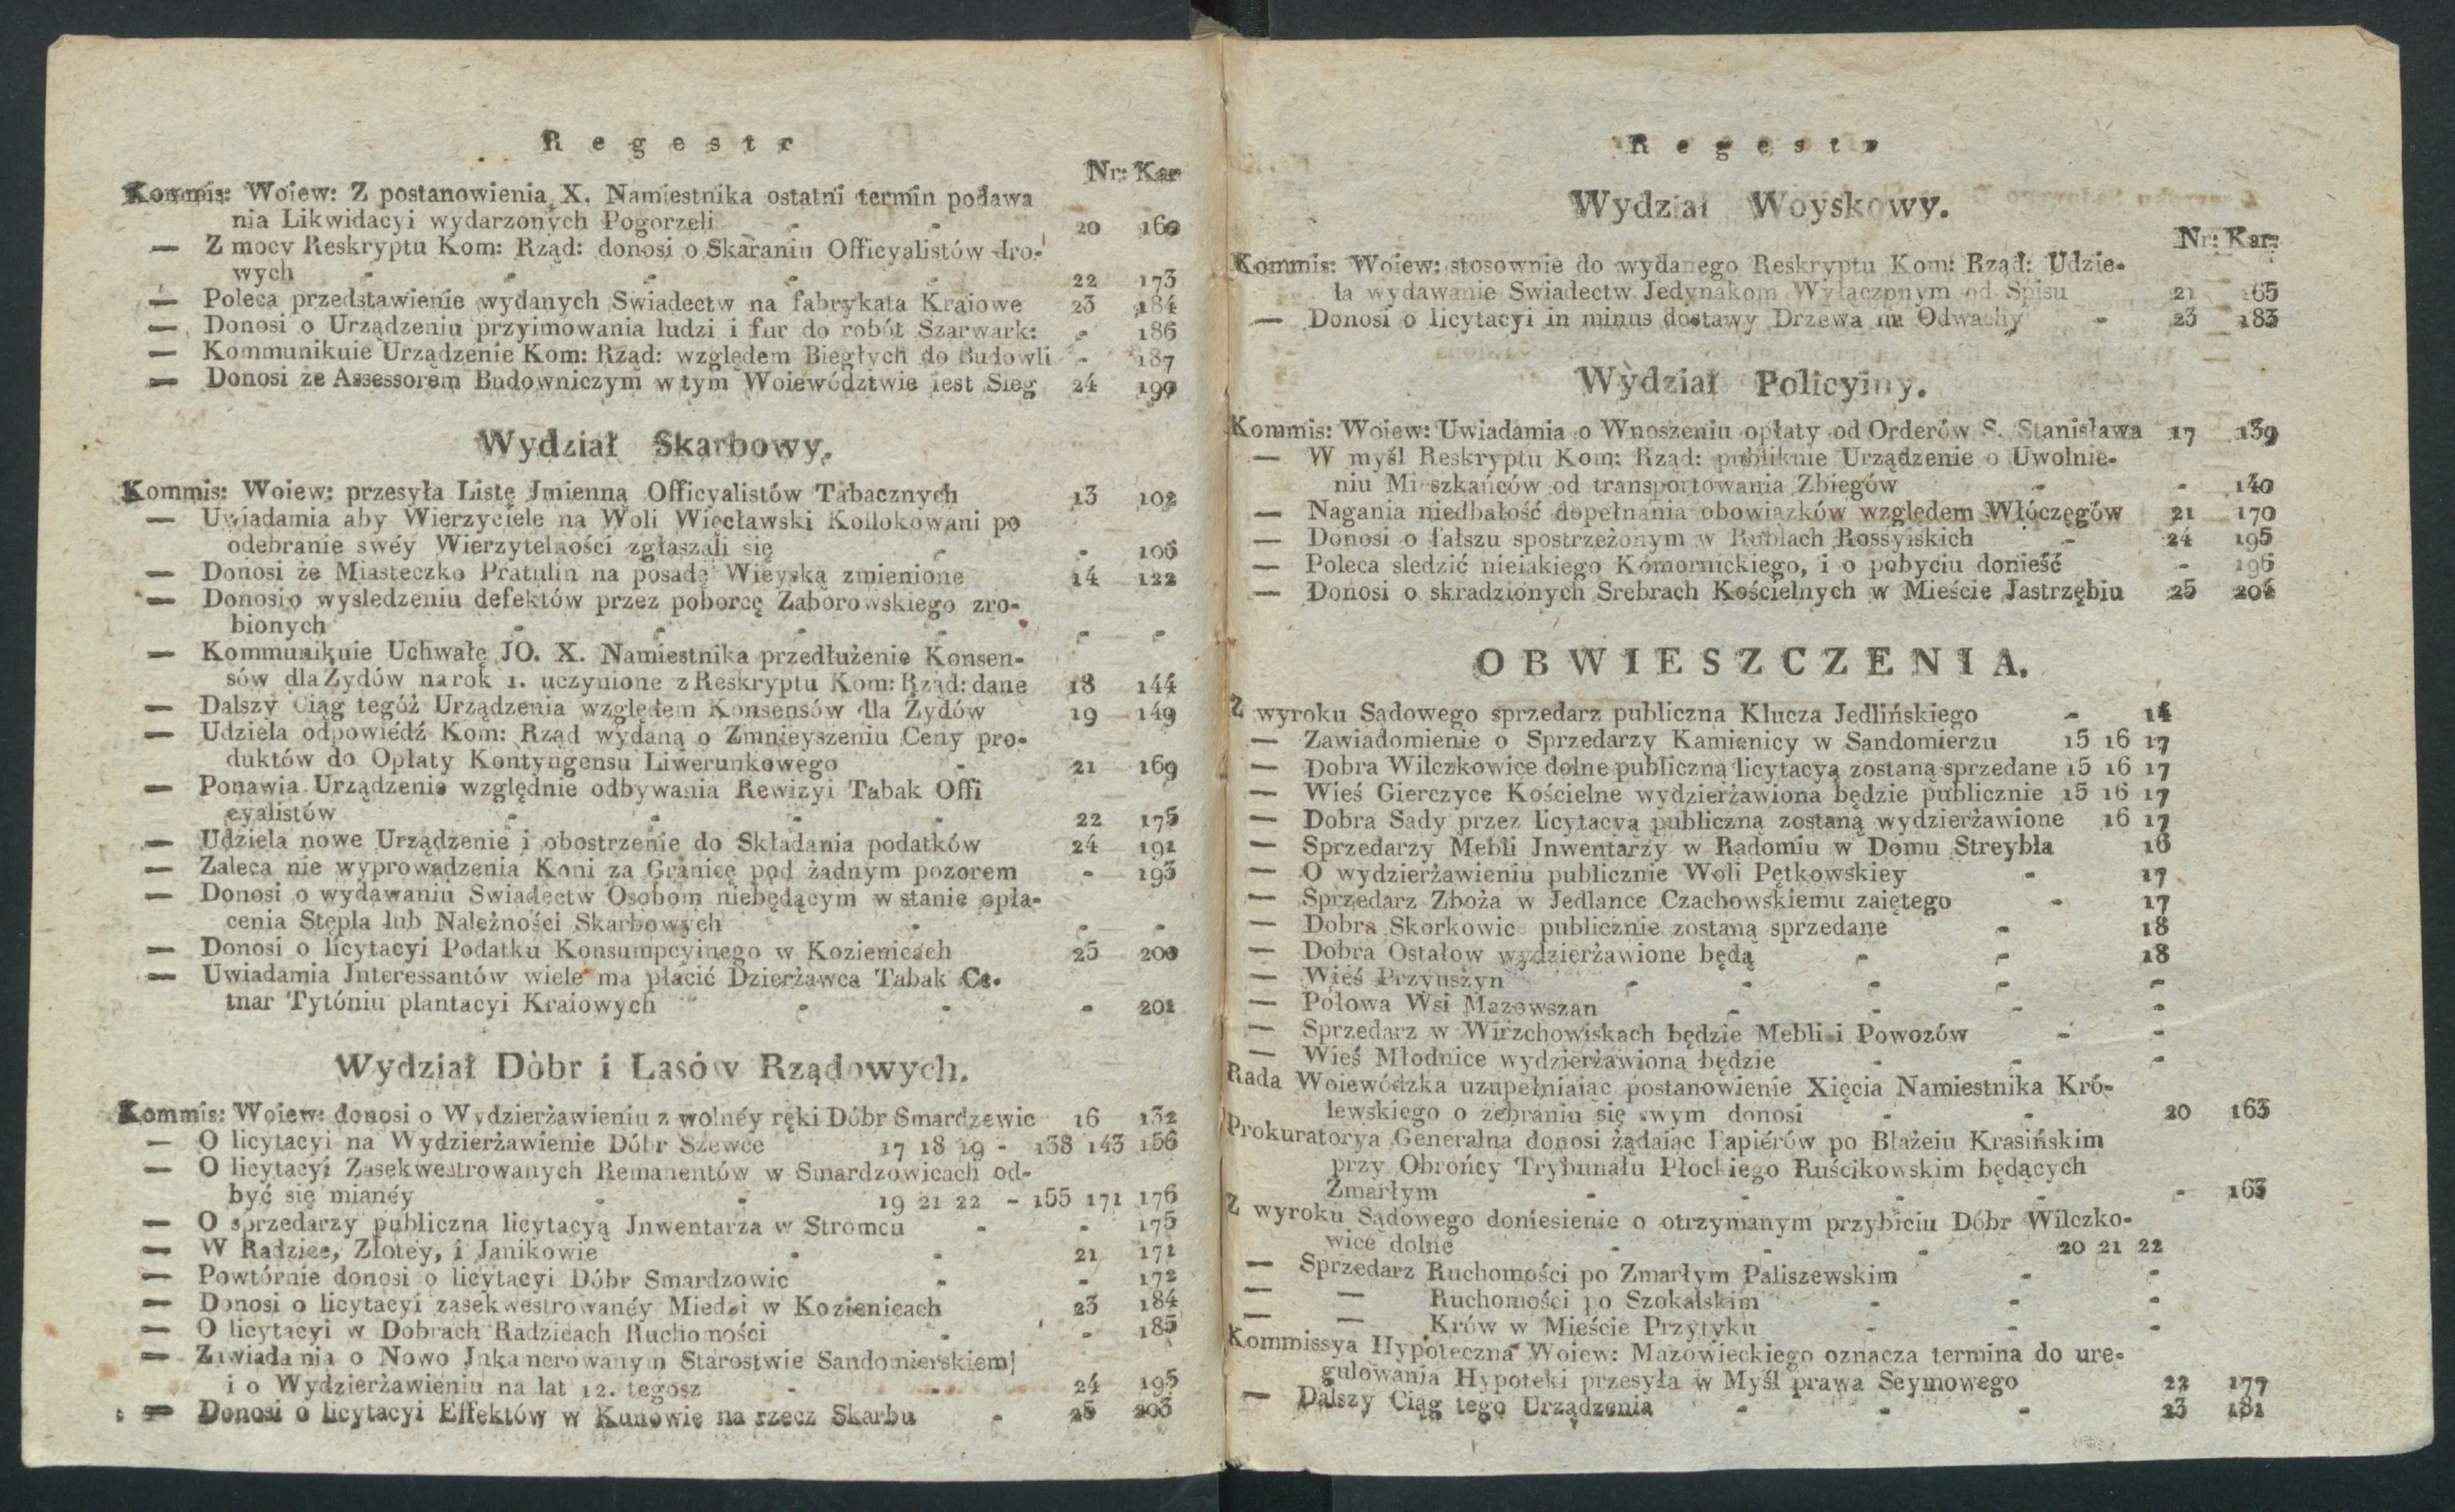 Regestr
Nr: Kar
Kommis: Woiew: Z postanowienia X. Namiestnika ostatni termin podawa
nia Likwidacyi wydarzonych Pogorzeli - - 20 160
— Z mocy Reskryptu Kom: Rząd: donosi o Skaraniu Officyalistów dro-
wych - - - - - 22 173
— Poleca przedstawienie wydanych Swiadectw na fabrykata Kraiowe 23 184
— Donosi o Urządzeniu przyimowania ludzi i fur do robót Szarwark: - 186
— Kommunikuie Urządzenie Kom: Rząd: względem Biegłych do Budowli - 187
— Donosi ze Assessorem Budowniczym w tym Woiewództwie iest Sieg 24 190
Wydział Skarbowy.
Kommis: Woiew: przesyła Listę Jmienną Officyalistów Tabacznych 13 102
— Uwiadamia aby Wierzyciele na Woli Więcławski Kollokowani po
odebranie swéy Wierzytelności zgłaszali się - - 106
— Donosi że Miasteczko Pratulin na posadę Wieyską zmienione 14 122
— Donosi o wysledzeniu defektów przez poborcę Zaborowskiego zro-
bionych - - - - - -
— Kommunikuie Uchwałę JO. X. Namiestnika przedłużenie Konsen-
sów dla Żydów na rok 1. uczynione z Reskryptu Kom: Rząd: dane 18 144
— Dalszy Ciąg tegóż Urządzenia względem Konsensów dla Żydów 19 149
— Udziela odpowiédź Kom: Rząd wydaną o Zmnieyszeniu Ceny pro-
duktów do Opłaty Kontyngensu Liwerunkowego - 21 169
— Ponawia Urządzenie względnie odbywania Rewizyi Tabak Offi
cyalistów - - - - 22 175
— Udziela nowe Urządzenie i obostrzenie do Składania podatków 24 191
— Zaleca nie wyprowadzenia Koni za Granicę pod żadnym pozorem - 193
— Donosi o wydawaniu Swiadectw Osobom niebędącym w stanie opła-
cenia Stępla lub Należności Skarbowych - - -
— Donosi o licytacyi Podatku Konsumpcyinego w Kozienicach 25 200
— Uwiadamia Jnteressantów wiele ma płacić Dzierżawca Tabak Ce-
tnar Tytóniu plantacyi Kraiowych - - - 201
Wydział Dòbr i Lasów Rządowych.
Kommis: Woiew: donosi o Wydzierżawieniu z wolnéy ręki Dóbr Smardzewic 16 132
— O licytacyi na Wydzierżawienie Dóbr Szewce 17 18 19 - 138 143 156
— O licytacyi Zasekwestrowanych Remanentów w Smardzowicach od-
być się mianéy - - 19 21 22 - 155 171 176
— O sprzedarzy publiczną licytacyą Jnwentarza w Stromcu - - 175
— W Radzice, Złotey, i Janikowie - - 21 171
— Powtórnie donosi o licytacyi Dóbr Smardzowic - - 172
— Donosi o licytacyi zasekwestrowanéy Miedzi w Kozienicach 23 184
— O licytacyi w Dobrach Radzicach Ruchomości - - 185
— Zawiadania o Nowo Jnkamerowanym Starostwie Sandomierskiem
i o Wydzierżawieniu na lat 12. tegosz - - 24 195
— Donosi o licytacyi Effektów w Kunowie na rzecz Skarbu - 25 203
Regestr
Wydział Woyskowy.
Nr: Kar:
Kommis: Woiew: stosownie do wydanego Reskryptu Kom: Rząd: Udzie-
ła wydawanie Swiadectw Jedynakom Wyłączonym od Spisu 21 165
— Donosi o licytacyi in minus dostawy Drzewa na Odwachy - 23 183
Wydział Policyiny.
Kommis: Woiew: Uwiadamia o Wnoszeniu opłaty od Orderów S. Stanisława 17 139
— W myśl Reskryptu Kom: Rząd: publikuie Urządzenie o Uwolnie-
niu Mieszkańców od transportowania Zbiegów - - 140
— Nagania niedbałość dopełnania obowiązków względem Włóczęgów 21 170
— Donosi o fałszu spostrzeżonym w Rublach Rossyiskich - 24 195
— Poleca sledzić nieiakiego Komornickiego, i o pobyciu donieść - 196
— Donosi o skradzionych Srebrach Kościelnych w Mieście Jastrzębiu 25 204
OBWIESZCZENIA.
Z wyroku Sądowego sprzedarz publiczna Klucza Jedlińskiego - 14
— Zawiadomienie o Sprzedarzy Kamienicy w Sandomierzu 15 16 17
— Dobra Wilczkowice dolne publiczną licytacyą zostaną sprzedane 15 16 17
— Wieś Gierczyce Kościelne wydzierżawiona będzie publicznie 15 16 17
— Dobra Sady przez licytacyą publiczną zostaną wydzierżawione 16 17
— Sprzedarzy Mebli Jnwentarzy w Radomiu w Domu Streybla 16
— O wydzierżawieniu publicznie Woli Pętkowskiey - 17
— Sprzedarz Zboża w Jedlance Czachowskiemu zaiętego - 17
— Dobra Skorkowic publicznie zostaną sprzedane - 18
— Dobra Ostałow wydzierżawione będą - - 18
— Wieś Przyuszyn - - - - -
— Połowa Wsi Mazowszan - - - -
— Sprzedarz w Wirzchowiskach będzie Mebli i Powozów - -
— Wieś Młodnice wydzierżawioną będzie - - -
Rada Woiewódzka uzupełniaiąc postanowienie Xięcia Namiestnika Kró-
lewskiego o zebraniu się swym donosi - - 20 163
Prokuratorya Generalna donosi żądaiąc Papiérów po Błażeiu Krasińskim
przy Obrońcy Trybunału Płockiego Ruścikowskim będących
Zmarłym - - - - - 163
Z wyroku Sądowego doniesienie o otrzymanym przybiciu Dóbr Wilczko-
wice dolne - - - 20 21 22
— Sprzedarz Ruchomości po Zmarłym Paliszewskim - -
— — Ruchomości po Szokalskim - - -
— — Krów w Mieście Przytyku - - -
Kommissya Hypoteczna Woiew: Mazowieckiego oznacza termina do ure-
gulowania Hypoteki przesyła w Myśl prawa Seymowego 22 177
— Dalszy Ciąg tego Urządzenia - - - 23 181